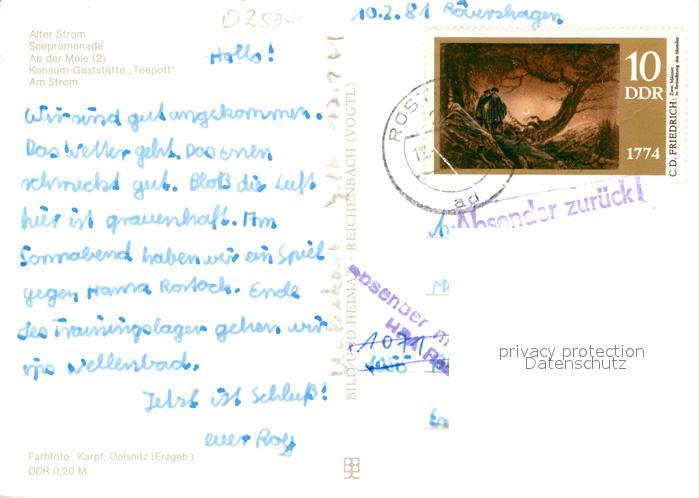 02530
10.2.81 Rövershagen
Alter Strom
Seepromenade
An der Mole (2)
Konsum-Gaststätte „Teepott"
Am Strom
Hallo!
Wir sind gut angekommen.
Das Wetter geht. Das Essen
schmeckt gut. Bloß die Luft
hier ist grauenhaft. Am
Sonnabend haben wir ein Spiel
gegen Hansa Rostock. Ende
des Trainingslagers gehen wir
ins Wellenbad.
Jetzt ist Schluß!
euer
Farbfoto: Karpf, Oelsnitz (Erzgeb.)
DDR 0,20 M
BILD UND HEIMAT · REICHENBACH (VOGTL)
10
DDR
1774
C. D. FRIEDRICH: Zwei Männer
in Betrachtung des Mondes
ROST
ad
Absender zurück!
Absender
1071
privacy protection
Datenschutz